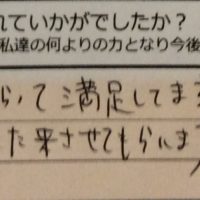 れていかがでしたか？
私達の何よりの力となり今後
らいて満足してます
た来させてもらいます